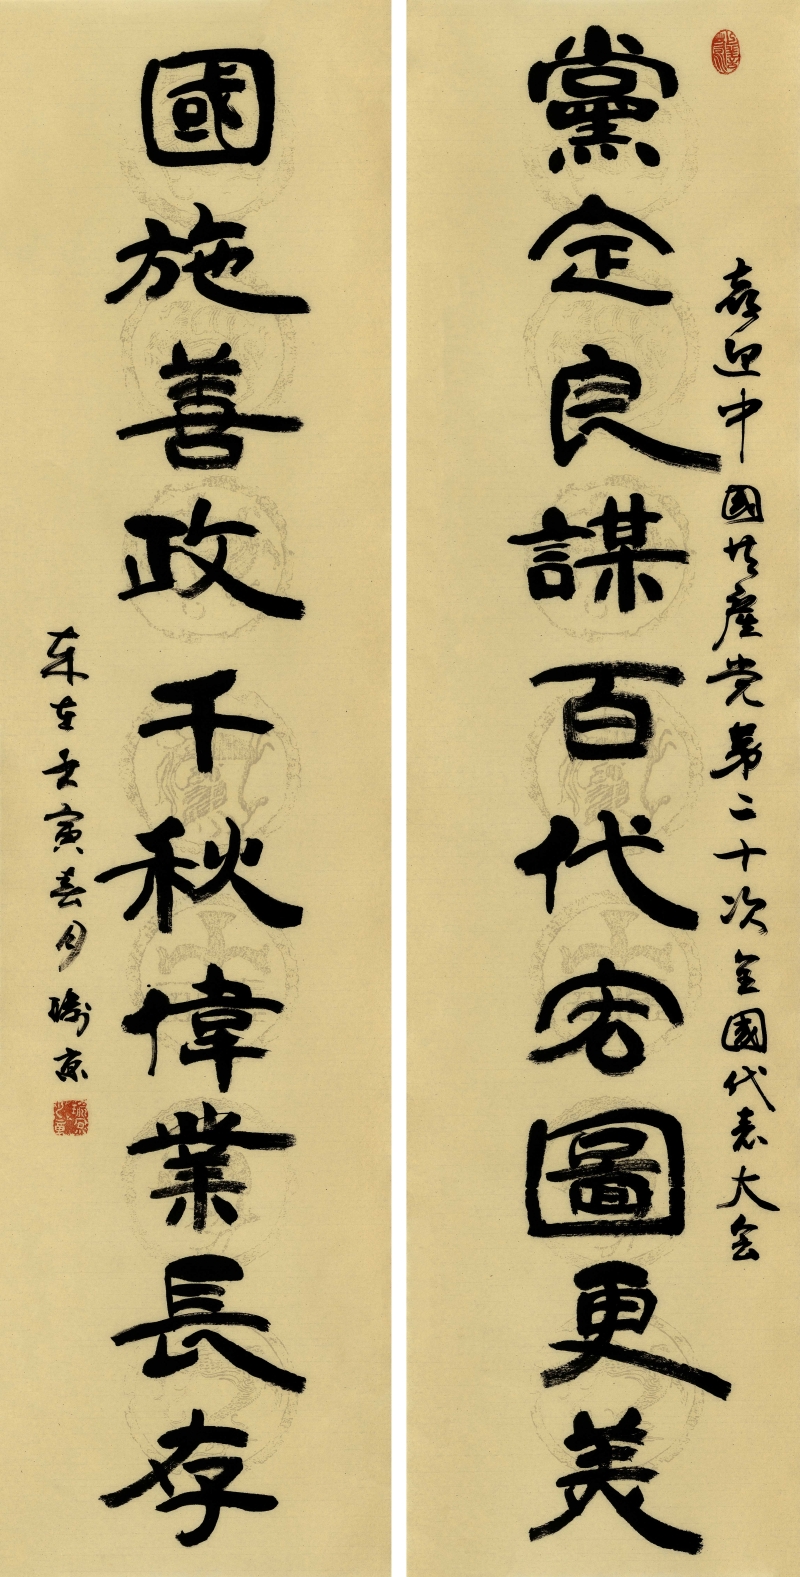 喜迎中國共產党第二十次全國代表大会
黨定良謀百代宏圖更美
國施善政千秋偉業長存
壬寅春月